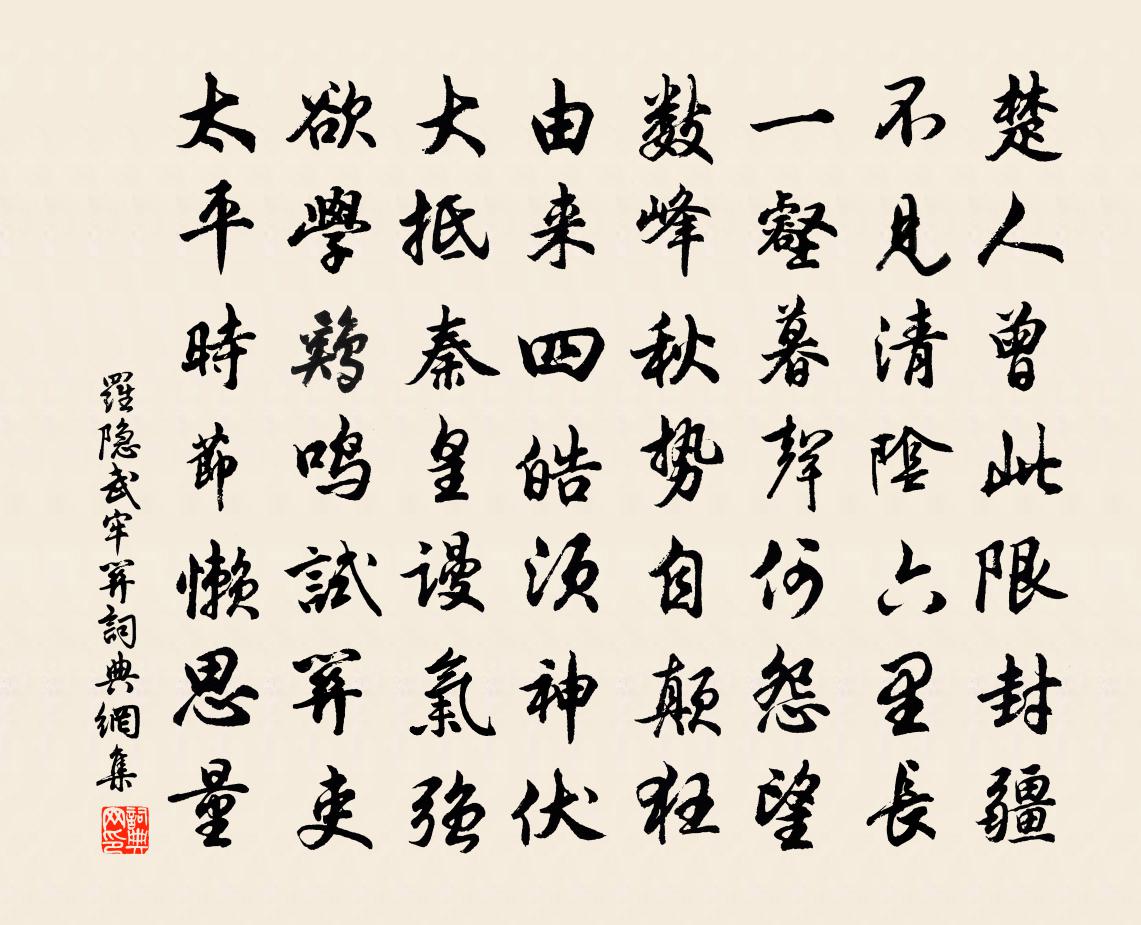 楚人曾此限封疆
不見清陰六里長
一壑暮聲何怨望
數峰秋勢自顛狂
由来四皓須神伏
大抵秦皇謾氣強
欲學鷄鳴試關吏
太平時節懶思量
羅隐武牢關詞典網集
詞典网印